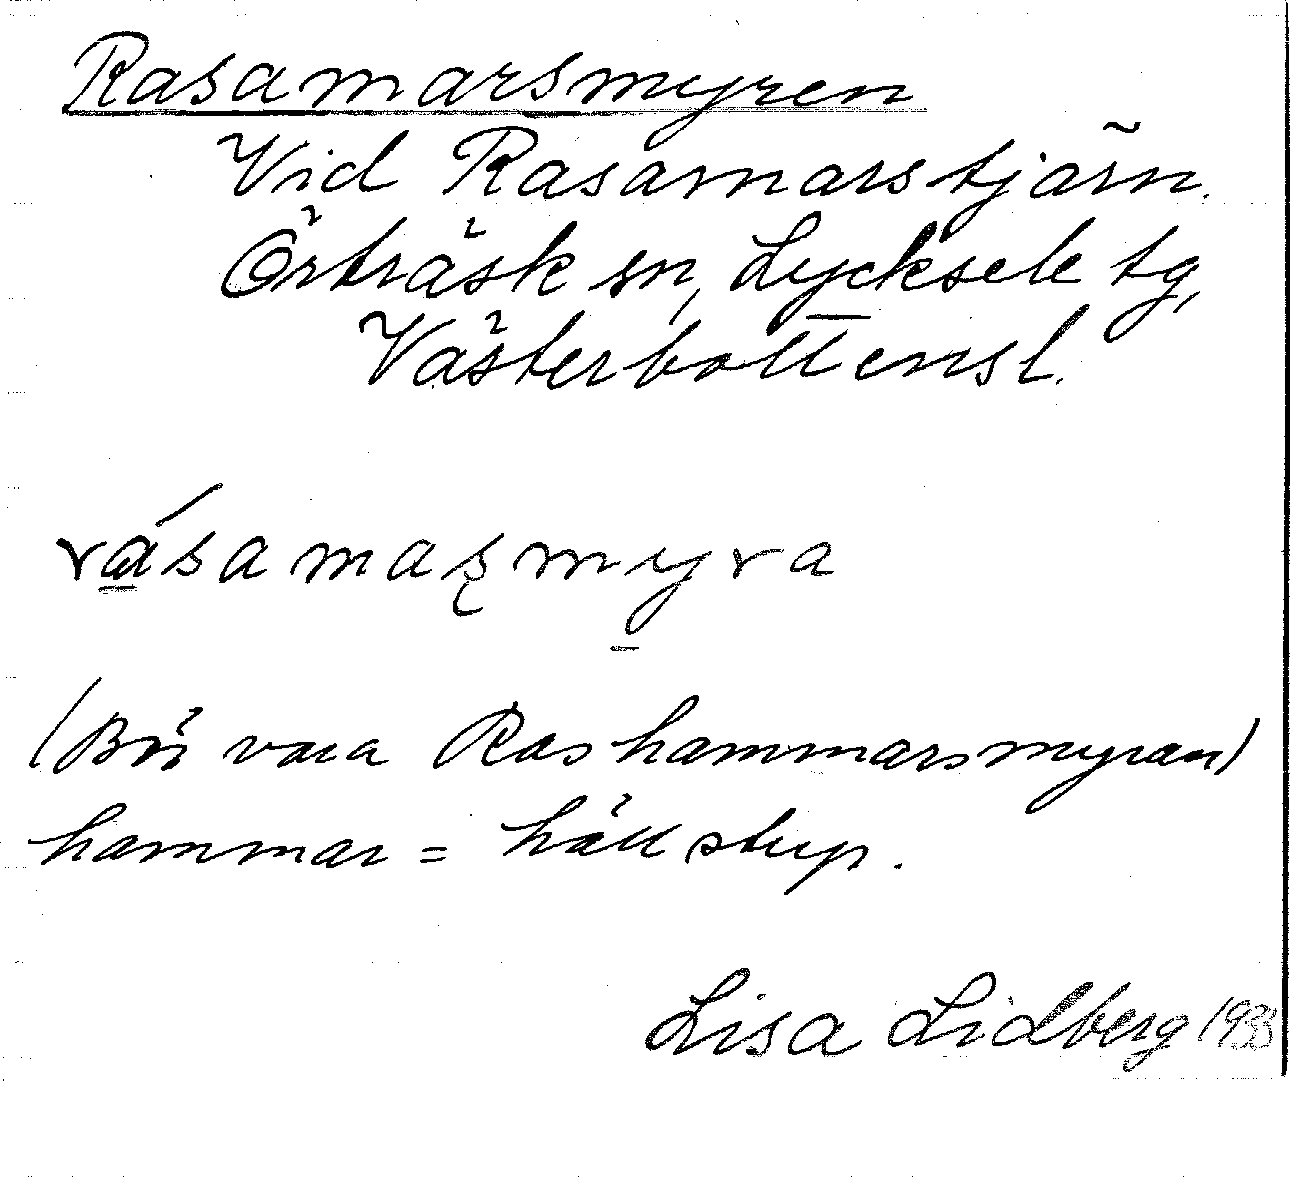 Rasamarsmyren
Vid Rasamarstjärn.
Örträsk sn, Lycksele tg,
Västerbottensl.
rása maʂmyra
(Bör vara Rashammarsmyran)
hammar = hällstup.
Lisa Lidberg 1933